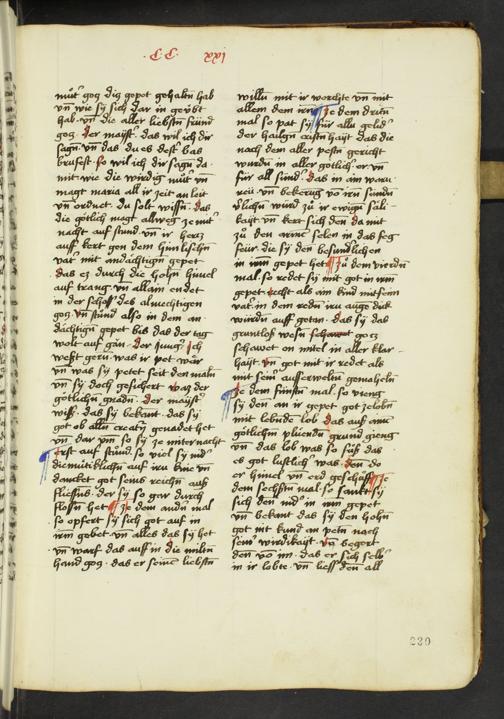 CC xxi
müt' gotz dis gepot gehaltn̄ hab
vn̄ wie sÿ sich dar in geÿbt
hab vn̄ die aller liebstn̄ fründ
gotz der maÿst' das wil ich dir
sagn̄ vn̄ das du es dest bas
brufest so wil ich dir sagn̄ da
mit wie die wirdig müt' vn̄
magt maria all ir zeit an leit
vn̄ ordnet du solt wissn̄ das
die götlich magt allweg ze mit'
nacht auff stund vn̄ ir hertz
auff kert gen dem himlischn̄
vat' mit andächtign̄ gepet
das ez durch die hohn̄ himel
auff trang vn̄ allain endet
in der schoss des almechtigen
gotz vn̄ stünd also in dem an
dächtign̄ gepet bis das der tag
wolt auff gān der jung' Ich
west gern̄ was ir pet wär
vn̄ was sÿ petet seit den maln̄
vn̄ sÿ doch gesichert was der
götlichn̄ gnadn̄ der maÿst'
wiss das sÿ bekant das sÿ
got ob alln̄ creatur genadet het
vn̄ dar vm̄ so sÿ ze mitternacht
erst auff stünd so viel sÿ nid'
diemütiklichn̄ auff irn̄ knie vn̄
dancket got seins reichn̄ auss
fliessns der sÿ so gar durch
flossn̄ het Ze dem andn̄ mal
so opfert sÿ sich got auff in
irm̄ gebet vn̄ alles das sÿ het
vn̄ warff das auff in die miltn̄
hand gotz das er seinē liebstn̄
willn̄ mit ir worchte vn̄ mit
allem dem irn̄ Ze dem dritn̄
mal so pat sÿ für alle geled'
der hailgn̄ cristn̄hait das die
nach dem aller pestn̄ gericht
wurdn̄ in aller götlich' er vn̄
für all sünd' das in ain waru
reu vn̄ bekerug vō irn̄ sündn̄
v'lichn̄ würd zu ir ewign̄ säli-
kaÿt vn̄ kert sich den da mit
zu den armē selen in das feg
feür die sÿ den besundlichen
in irm gepet het Zu dem vierdn̄
mal so redet sÿ mit got in irm
gepet recht als ain kind mit seinē
vat' in dem redn̄ irn̄ auge dick
würdn̄ auff getan das sÿ das
gruntlos wesn̄ gotz
schawet on mitel in aller klar-
haÿt vn̄ got mit ir redet als
mit seiner ausserweltn̄ gemaheln̄
Ze dem fünftn̄ mal so vieng
sÿ den an ir gepet got zelobn̄
mit lebnde lob das auss aim
götlichn̄ plüendn̄ grund gieng
vn̄ das lob was so süss das
es got lustlich was den do
er himel vn̄ erd geschaff Ze
dem sechstn̄ mal so sanckt sÿ
sich den nid' in irm gepet
vn̄ bekant das sÿ den hohn̄
got nit kund an petn̄ nach
sein' wirdikaÿt vn̄ begert
den vō im das er sich selb'
in ir lobte vn̄ liess den all
230